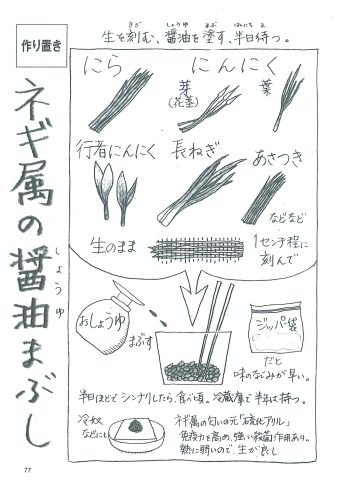 作り置き
ネギ属の醤油まぶし
しょうゆ
生を刻む、醤油を塗す、半日待つ。
きざ しょうゆ まぶ はんにちま
にら
にんにく
芽
(花茎)
葉
行者にんにく
長ねぎ
あさつき
などなど
生のまま
1センチ程に
刻んで
おしょうゆ
まぶす
ジッパー袋
だと
味のなじみが早い。
半日ほどでシンナリしたら、食べ頃。冷蔵庫で半年は持つ。
冷奴
などにも
ネギ属の匂いの元「硫化アリル」
免疫力を高め、強い殺菌作用あり。
熱に弱いので、生が良し
77